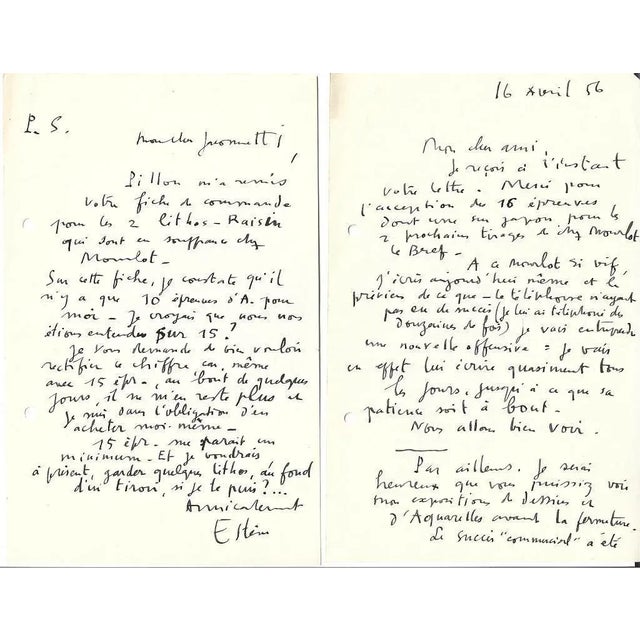 P. S.
Mon cher
Pillon m'a remis
votre fiche de commande
pour les 2 lithos - Raisin
qui sont en souffrance chez
Mourlot -
Sur cette fiche, je constate qu'il
n'y a que 10 épreuves d'A. pour
moi - je croyais que nous nous
étions entendus sur 15 ?
Je vous demande de bien vouloir
rectifier ce chiffre car, même
avec 15 épr., au bout de quelques
jours, il ne m'en reste plus et
je suis dans l'obligation d'en
acheter moi-même -
15 épr. me parait un
minimum. Et je voudrais
à présent, garder quelques lithos, au fond
d'un tiroir, si je le puis ?...
Amicalement
Estève
16 Avril 56
Mon cher ami,
Je reçois à l'instant
votre lettre. Merci pour
l'acception des 16 épreuves
dont une sur japon pour les
2 prochains tirages de chez Mourlot
le Bref -
A ce Mourlot si vif,
j'écris aujourd'hui même et le
préviens de ce que - le téléphone n'ayant
pas eu de succès (je lui ai téléphoné des
douzaines de fois) je vais entreprendre
une nouvelle offensive = je vais
en effet lui écrire quasiment tous
les jours, jusqu'à ce que sa
patience soit à bout.
Nous allons bien voir.
Par ailleurs. Je serai
heureux que vous puissiez voir
mon exposition de dessins et
d'Aquarelles avant la fermeture.
Le succès "commercial" a été